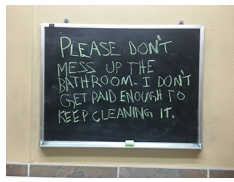 PLEASE DON'T
MESS UP THE
BATHROOM. I DON'T
GET PAID ENOUGH TO
KEEP CLEANING IT.